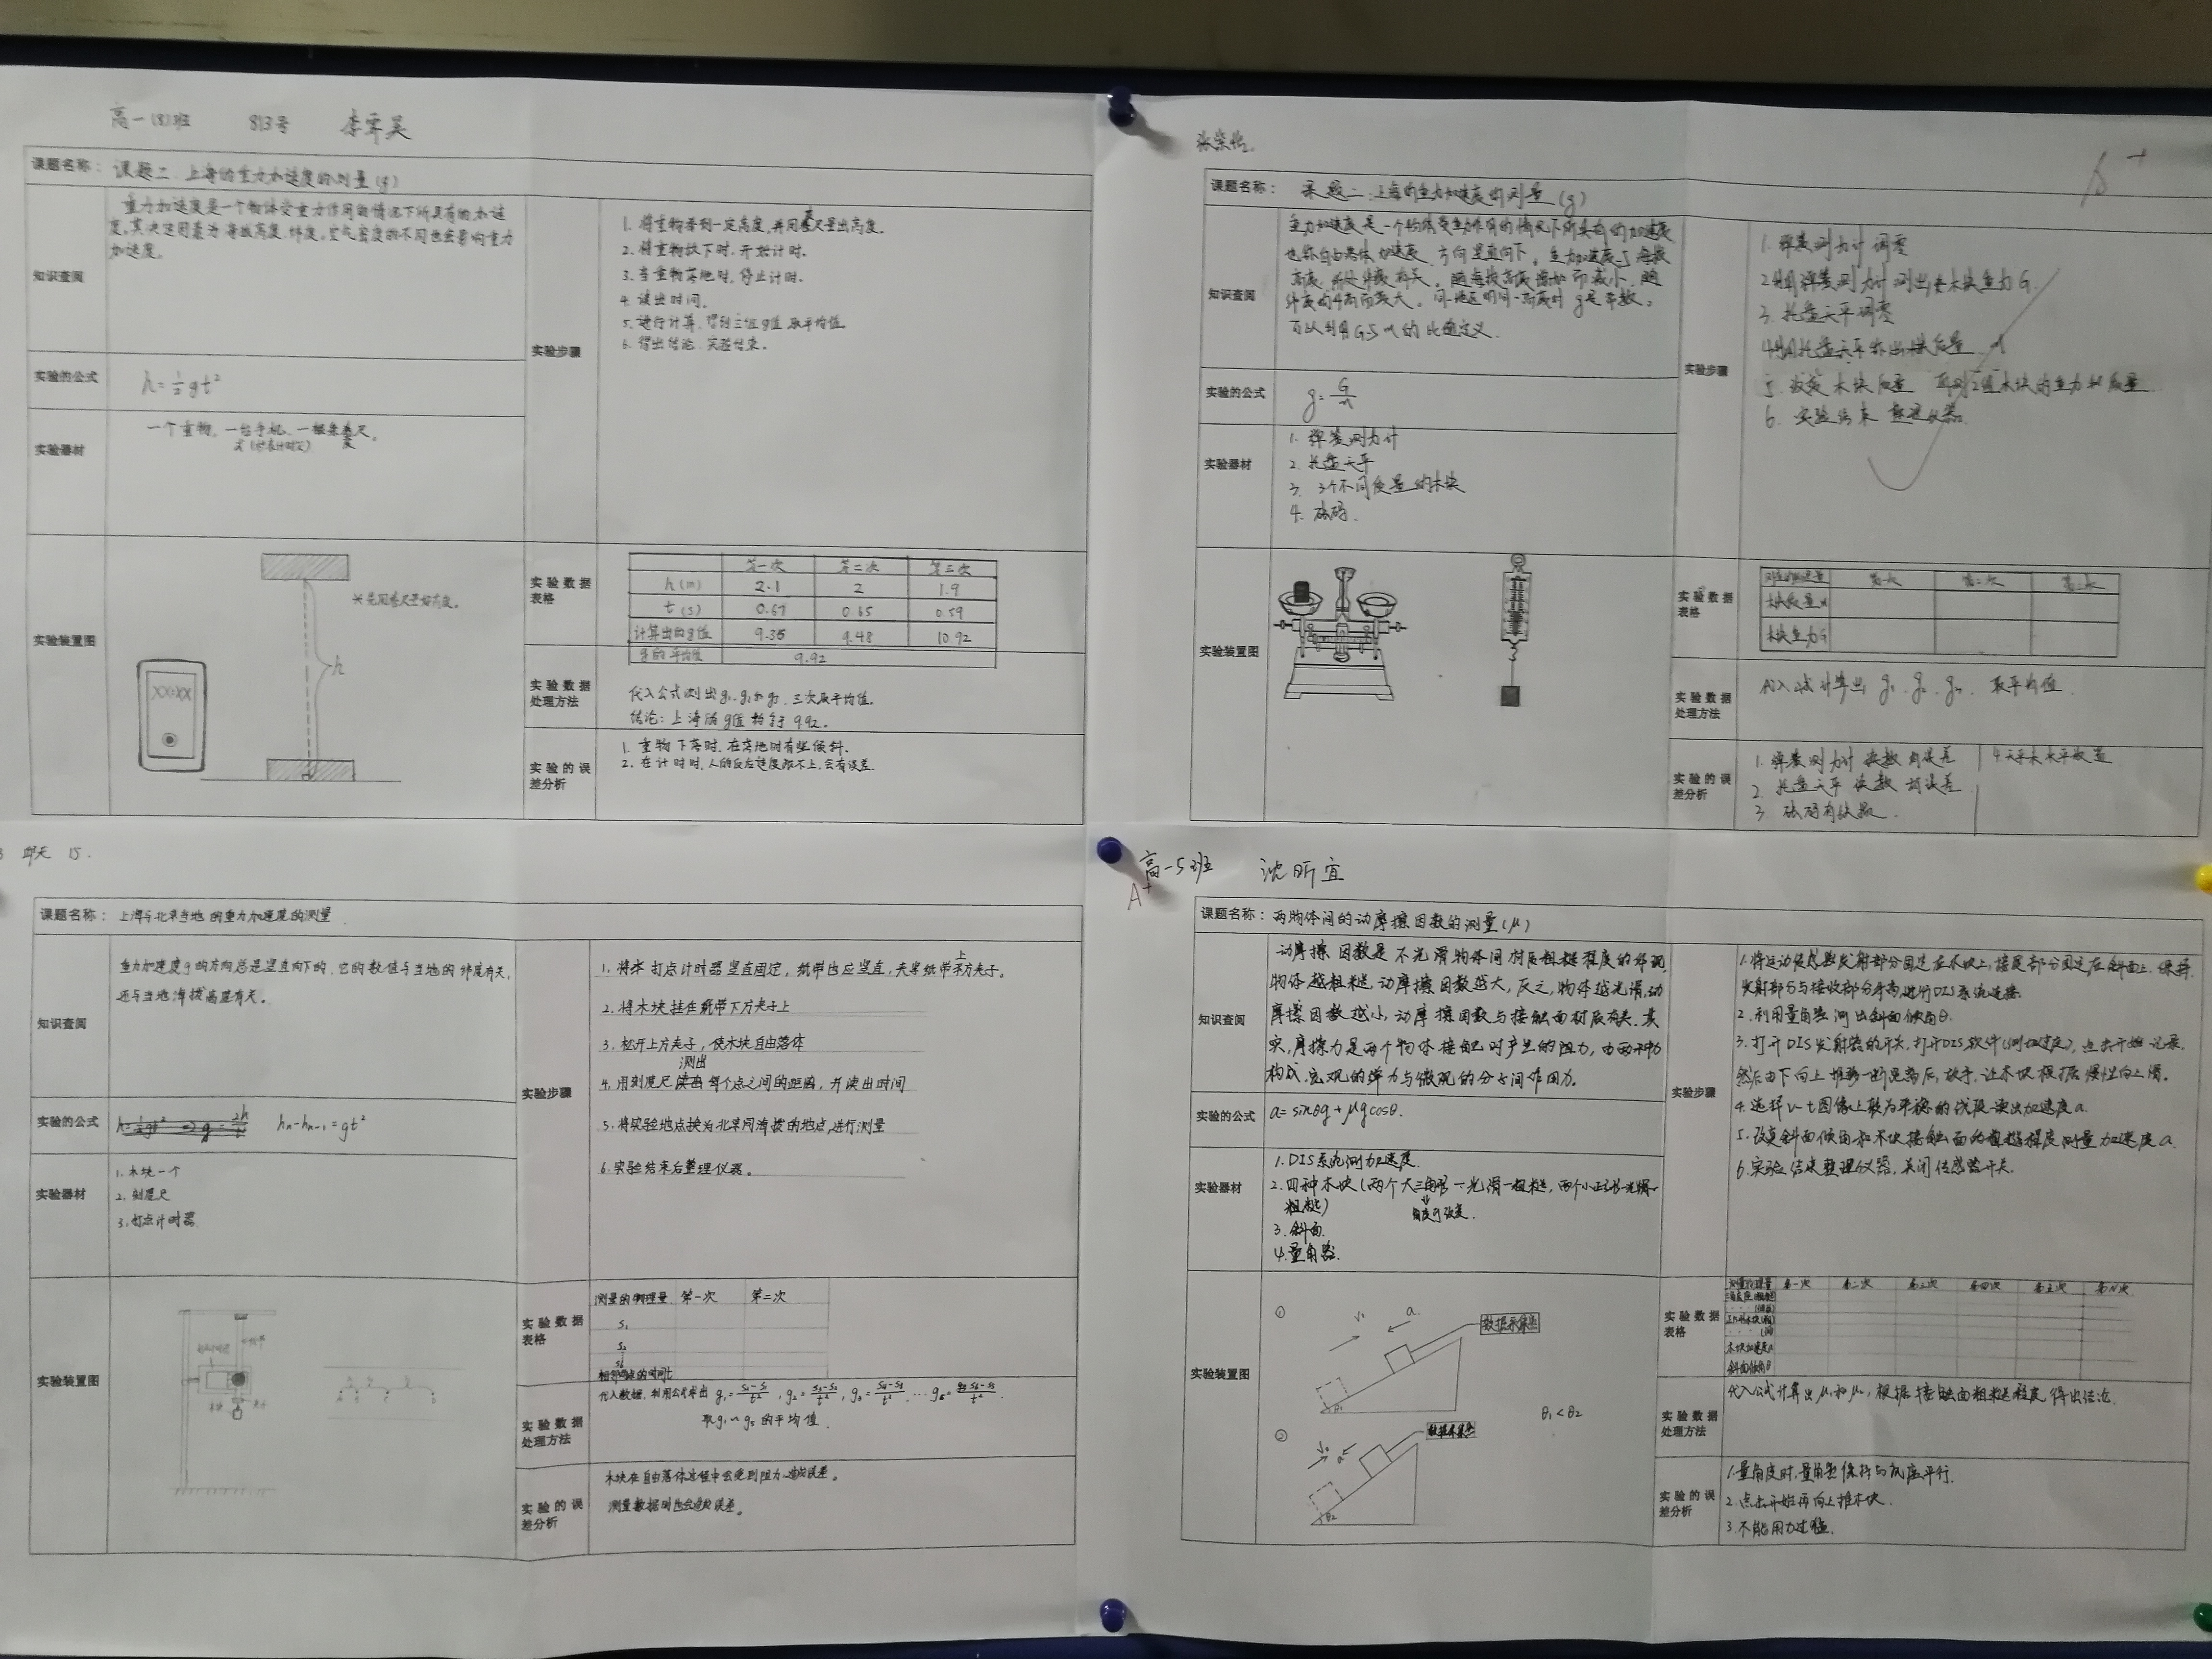 高一(8)班 813号
课题名称: 课题二 上海的重力加速度的测量(g)
知识查阅
重力加速度是一个物体受重力作用的情况下所具有的加速
度,其决定因素为海拔高度,纬度,空气密度的不同也会影响重力
加速度。
实验的公式
h=½gt²
实验器材
一个重物,一台手机,一根卷尺。
实验装置图
XX:XX
h
实验步骤
1. 将重物举到一定高度,并用卷尺量出高度。
2. 将重物放下时,开始计时。
3. 当重物落地时,停止计时。
4. 读出时间。
5. 进行计算,得到三组g值取平均值。
6. 得出结论,实验结束。
实验数据
表格
第一次 第二次 第三次
h(m) 2.1 2 1.9
t(s) 0.67 0.65 0.59
计算出的g值 9.35 9.48 10.92
g的平均值 9.92
实验数据
处理方法
代入公式测出g₁、g₂和g₃,三次取平均值。
结论:上海的g值约等于9.92。
实验的误
差分析
1. 重物下落时,在落地时有些倾斜.
2. 在计时时,人的反应速度跟不上,会有误差.
课题名称: 课题二:上海的重力加速度的测量(g)
知识查阅
重力加速度是一个物体受重力作用的情况下所具有的加速度
也称自由落体加速度,方向竖直向下。重力加速度与海拔
高度,所处纬度有关。随海拔高度增加而减小,随
纬度的升高而变大。同一地区的同一高度时g是常数,
可以利用G与m的比值定义.
实验的公式
g=G/m
实验器材
1. 弹簧测力计
2. 托盘天平
3. 3个不同质量的木块
4. 砝码.
实验装置图
实验步骤
1. 弹簧测力计调零
2. 用弹簧测力计测出木块重力G.
3. 托盘天平调零
4. 用托盘天平称出木块质量m
5. 改变木块质量 再测2组木块的重力和质量
6. 实验结束 整理仪器.
实验数据
表格
测量的物理量 第一次 第二次 第三次
木块质量m
木块重力G
实验数据
处理方法
代入公式计算出g₁、g₂、g₃,取平均值.
实验的误
差分析
1. 弹簧测力计读数有误差
2. 托盘天平读数有误差
3. 砝码有缺损.
4. 天平未水平放置
15.
课题名称: 上海与北京当地的重力加速度的测量
知识查阅
重力加速度g的方向总是竖直向下的,它的数值与当地的纬度有关,
还与当地海拔高度有关。
实验的公式
hn-hn-1=gt²
实验器材
1. 木块一个
2. 刻度尺
3. 打点计时器
实验装置图
实验步骤
1. 将打点计时器竖直固定,纸带也应竖直,夹紧纸带上方夹子。
2. 将木块挂在纸带下方夹子上
3. 松开上方夹子,使木块自由落体
4. 用刻度尺测出每个点之间的距离,并读出时间
5. 将实验地点换为北京同海拔的地点,进行测量
6. 实验结束后整理仪器。
实验数据
表格
测量的物理量 第一次 第二次
S₁
S₂
S₆
相邻两点的时间t
实验数据
处理方法
取g₁~g₅的平均值.
实验的误
差分析
木块在自由落体过程中会受到阻力,造成误差。
测量数据时也会造成误差。
高一5班 沈昕宜
A+
课题名称: 两物体间的动摩擦因数的测量(μ)
知识查阅
动摩擦因数是不光滑物体间材质粗糙程度的体现,
物体越粗糙,动摩擦因数越大,反之,物体越光滑,动
摩擦因数越小,动摩擦因数与接触面材质有关.其
实,摩擦力是两个物体接触时产生的阻力,由两种力
构成,宏观的弹力与微观的分子间作用力.
实验的公式
a=sinθg+μgcosθ.
实验器材
1. DIS系统测加速度.
角度可改变.
3. 斜面.
4. 量角器.
实验装置图
① v₀ a 数据采集器
θ₁
θ₁<θ₂
② v₀ a 数据采集器
θ₂
实验步骤
1. 将运动传感器发射部分固定在木块上,接收部分固定在斜面上.保持
发射部分与接收部分平齐,进行DIS系统连接.
2. 利用量角器测出斜面倾角θ.
3. 打开DIS发射器的开关,打开DIS软件(测加速度),点击开始记录.
然后由下向上推动一段距离后,放手,让木块根据惯性向上滑.
4. 选择v-t图像上较为平稳的线段,读出加速度a.
5. 改变斜面倾角和木块接触面的粗糙程度测量加速度a.
6. 实验结束整理仪器,关闭传感器开关.
实验数据
表格
测量物理量 第一次 第二次 第三次 第四次 第五次 第N次
木块加速度a
斜面倾角θ
实验数据
处理方法
代入公式计算出μ₁和μ₂,根据接触面粗糙程度得出结论.
实验的误
差分析
1. 量角度时,量角器保持与底座平行.
2. 点击开始再向上推木块.
3. 不能用力过猛.